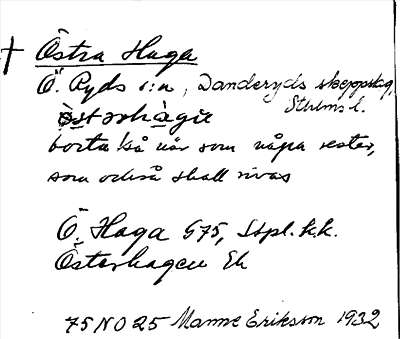 † Östra Haga
Ö. Ryds s:n, Danderyds skeppslag,
Sthlms l.
borta så när som några rester,
som också skall rivas
Ö. Haga G75, Sspl. k.k.
Österhagen Ek
75 NO 25 Manne Eriksson 1932